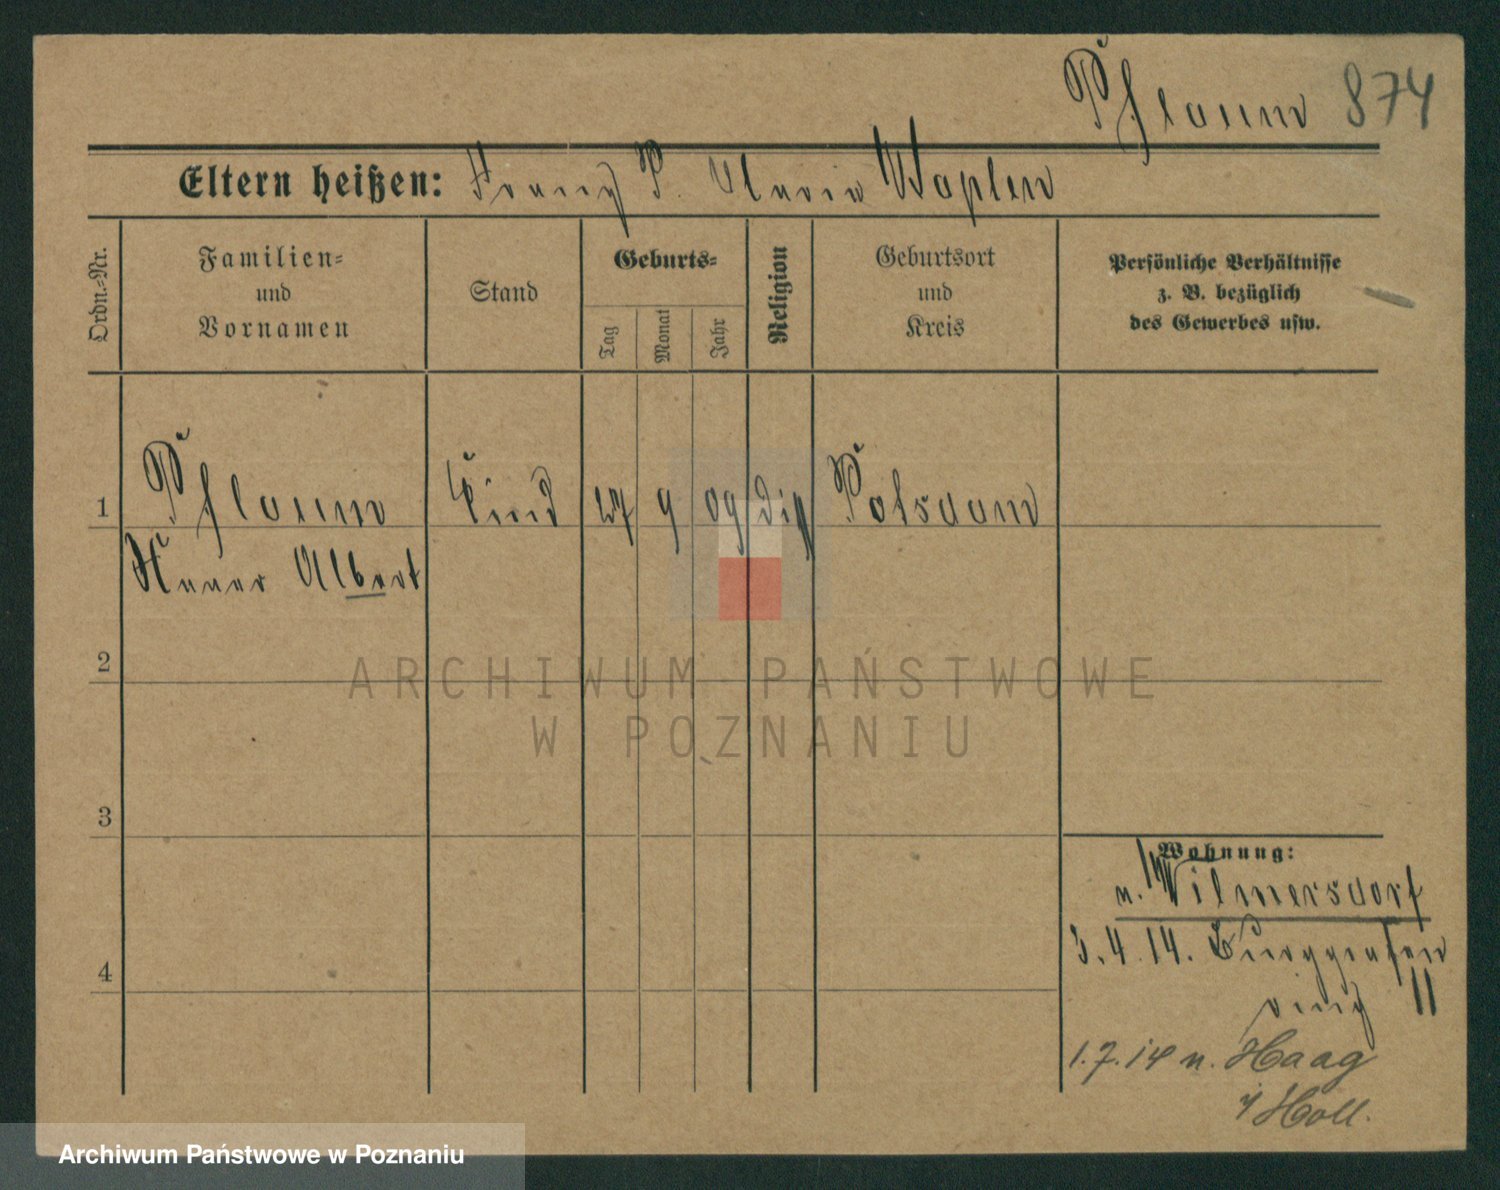 Pflaum 874
Eltern heißen: Franz P. Maria Waplen
Ordn.-Nr.
Familien-
und
Vornamen
Stand
Geburts-
Tag
Monat
Jahr
Religion
Geburtsort
und
Kreis
Persönliche Verhältnisse
z. B. bezüglich
des Gewerbes usw.
1 Pflaum Kind 27 9 09 diss Potsdam
Albert
2
3
4
Wohnung:
n. Wilmersdorf
3.4.14. Burggrafen
ring 11
1.7.14 n. Haag
i/Holl.
ARCHIWUM PAŃSTWOWE
W POZNANIU
Archiwum Państwowe w Poznaniu